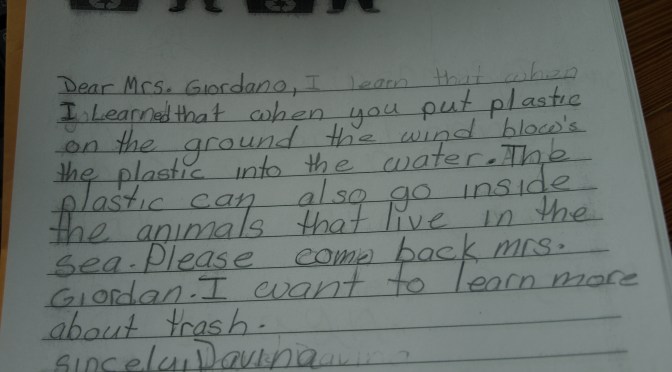 Dear Mrs. Giordano, I learn that when
I Learned that when you put plastic
on the ground the wind blow's
the plastic into the water. The
plastic can also go inside
the animals that live in the
sea. Please come back mrs.
Giordan. I want to learn more
about trash.
Sincely, Davina